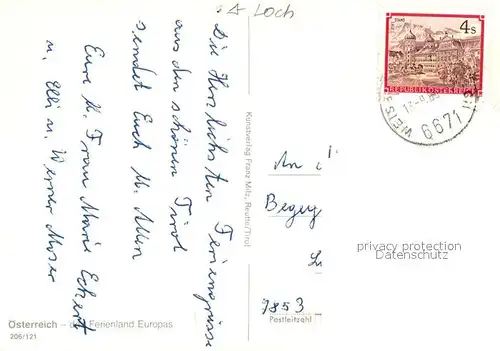 Loch
Die Herzlichsten Feriengrüsse
aus den schönen Tirol
sendet Euch M. Allen
Eure M. Frau Marie Eckert
u. Elli u. Werner Moser
Kunstverlag Franz Milz, Reutte/Tirol
4 S
REPUBLIK ÖSTERREICH
WEISS
6671
An
Begeg
7853
Postleitzahl
privacy protection
Datenschutz
Österreich – Ferienland Europas
206/121